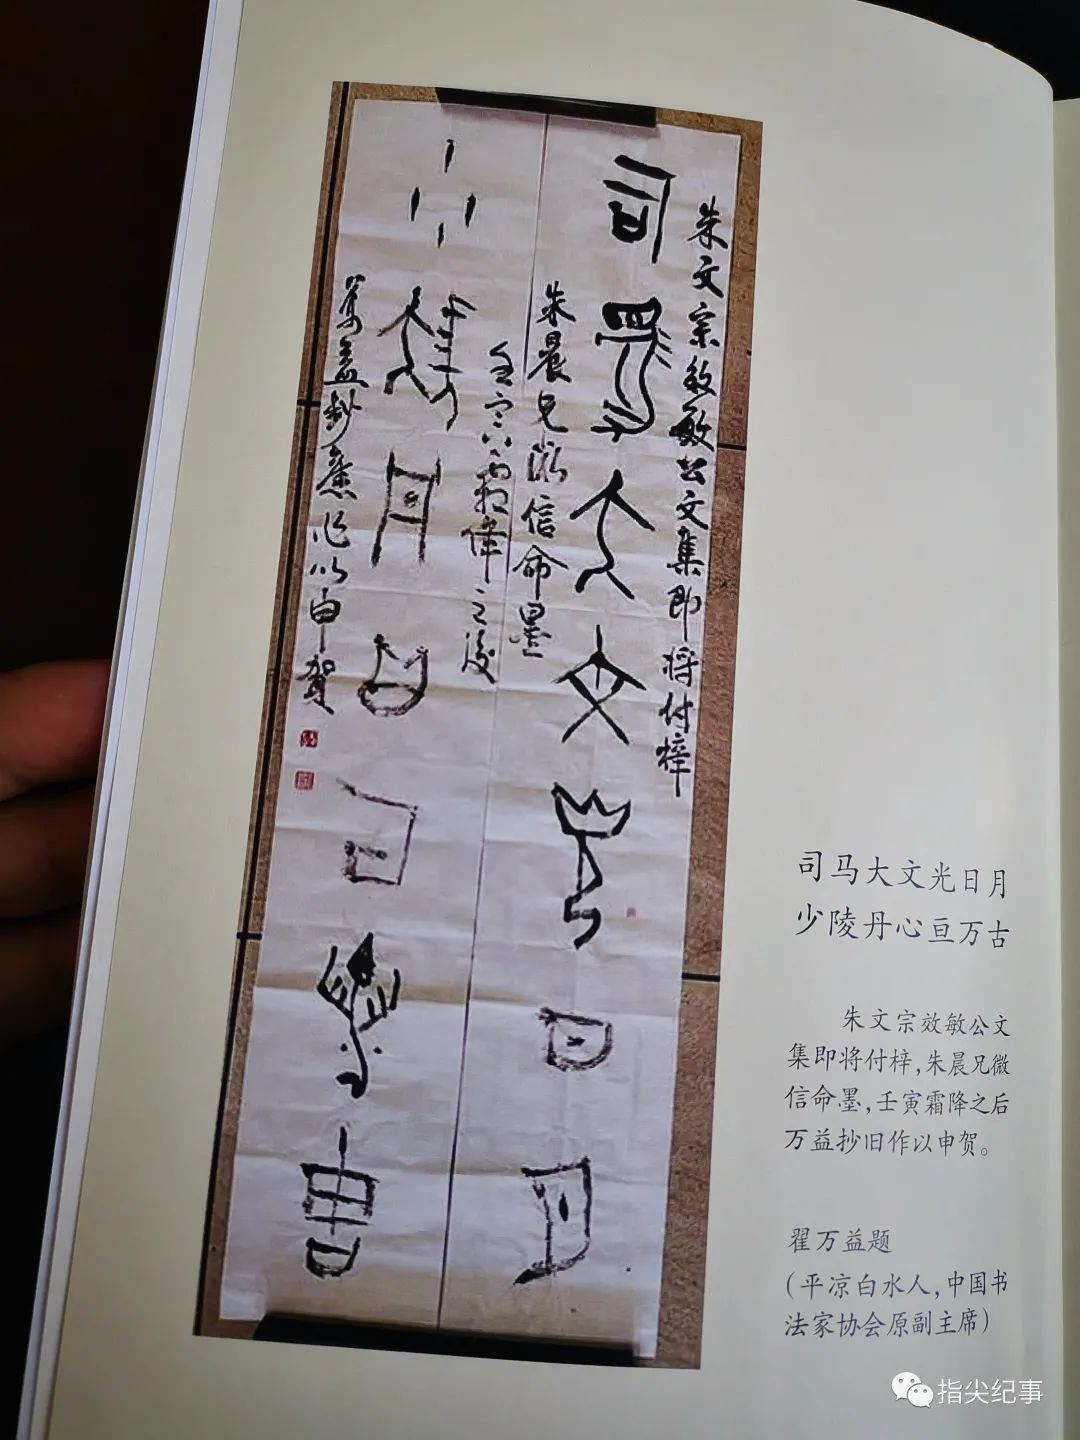 朱文宗效敏公文集即将付梓
司马大文光日月
朱晨兄微信命墨
壬寅霜降之后
少陵丹心亘万古
万益抄旧作以申贺
司马大文光日月
少陵丹心亘万古
朱文宗效敏公文
集即将付梓，朱晨兄微
信命墨，壬寅霜降之后
万益抄旧作以申贺。
翟万益题
（平凉白水人，中国书
法家协会原副主席）
指尖纪事